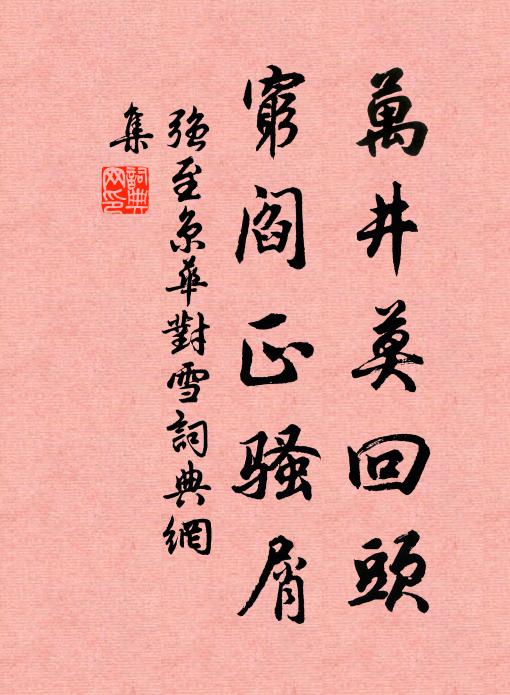 萬井莫回頭
窮閻正騷屑
强至京華對雪詞典網
集
詞典網印